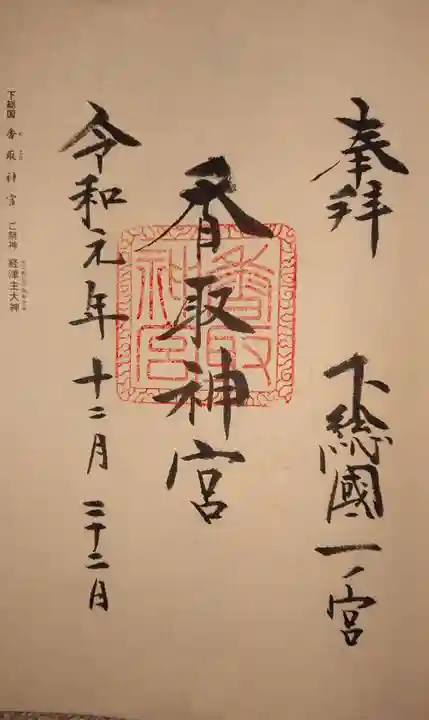 奉拝
下総國一ノ宮
香取神宮
香取神宮
令和元年十二月二十二日
下総国 香取神宮 ご祭神 経津主大神